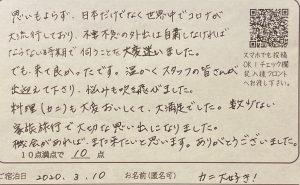 思いもよらず、日本だけでなく世界中でコロナが
大流行しており、不要不急の外出は自粛しなければ
ならない時期で伺うことも大変迷いました。
でも、来て良かったです。温かくスタッフの皆さんが
出迎えて下さり、悩みも吹き飛びました。
料理(カニ)も大変おいしくて、大満足でした。数少ない
家族旅行で大切な思い出になりました。
機会があれば、また来たいと思います。ありがとうございました。
10点満点で 10 点
スマホでも投稿
OK!チェック欄
記入後フロント
へお渡し下さい。
ご宿泊日 2020.3.10 お名前(匿名可) カニ大好き!